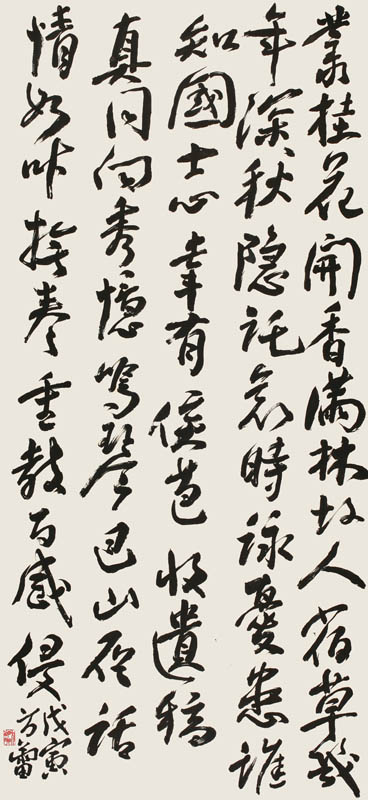 叢桂花開香滿林故人宿草幾
年深秋隱託哀時詠憂患誰
知國士心幸有侯芭收遺稿
真同向秀憶鳴琴巴山夜話
情如昨掩卷重教百感侵
戊寅
方